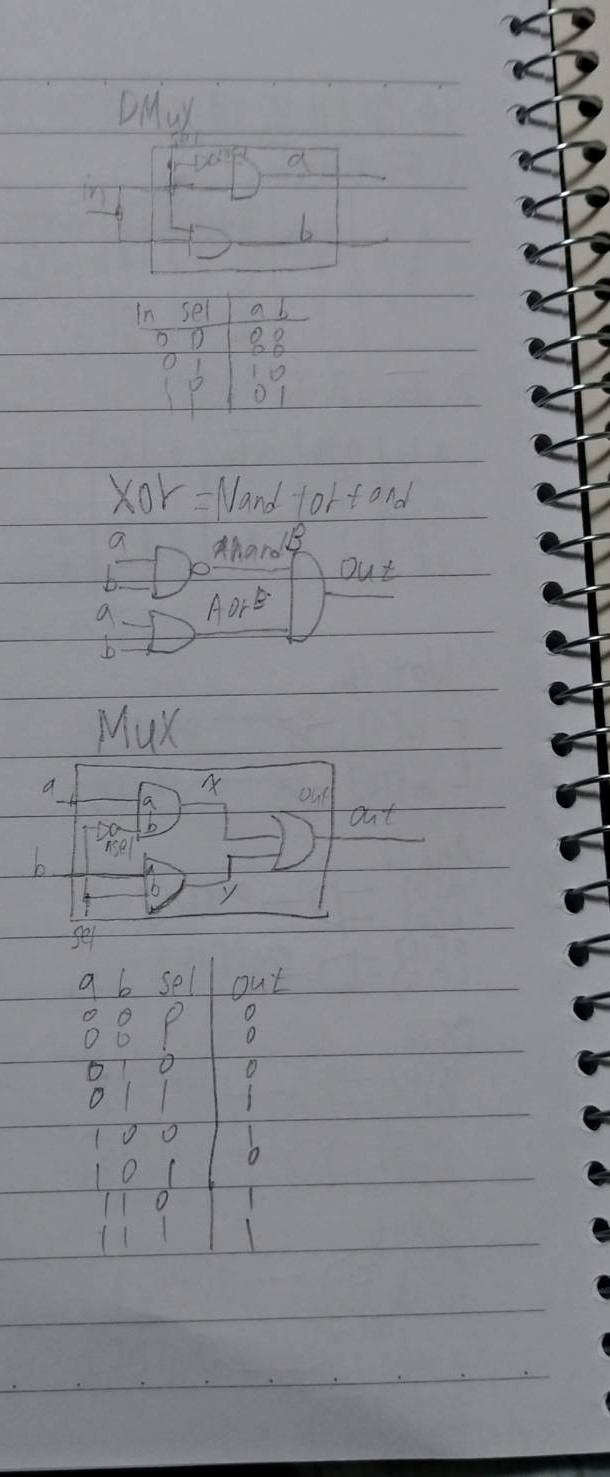 DMux
sel
nsel a
in
b
In sel a b
0 0 0 0
0 1 0 0
1 0 1 0
1 1 0 1
Xor = Nand + or + and
a AnandB
b out
a A or B
b
Mux
a a x out out
b
nsel
b a
b y
sel
a b sel out
0 0 0 0
0 0 1 0
0 1 0 0
0 1 1 1
1 0 0 1
1 0 1 0
1 1 0 1
1 1 1 1